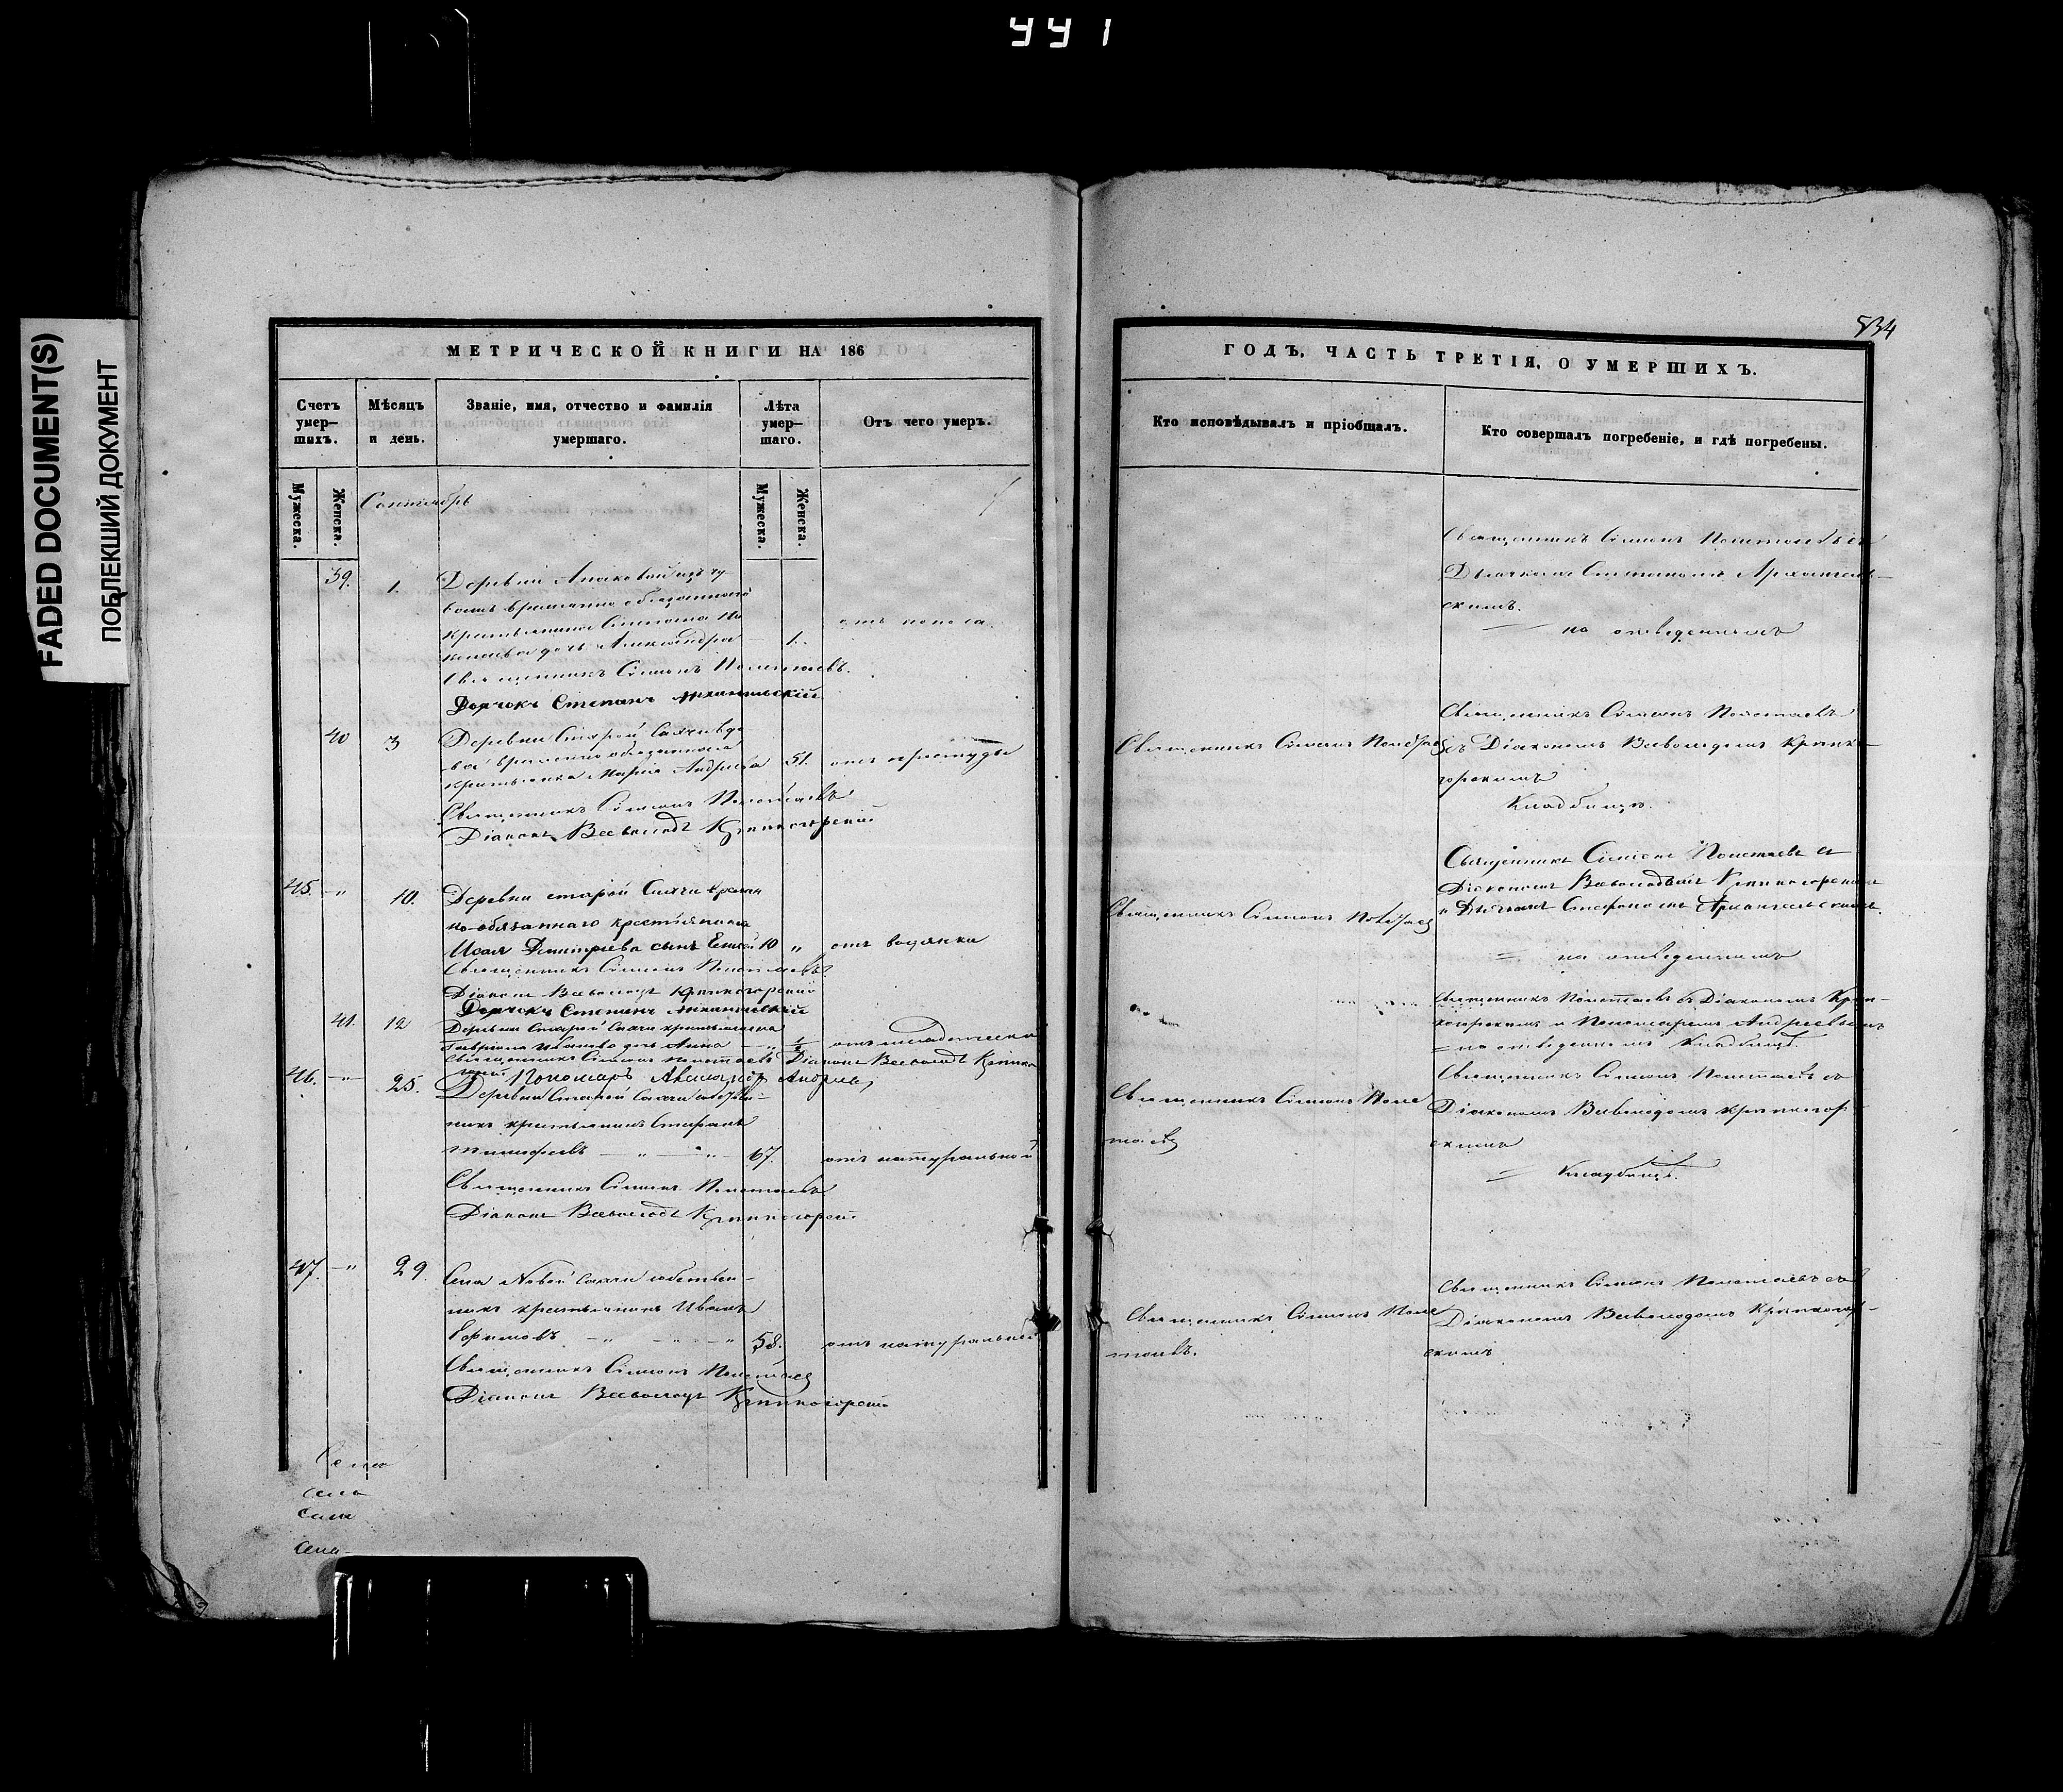 991
FADED DOCUMENT(S)
ПОБЛЕКШИЙ ДОКУМЕНТ
534
МЕТРИЧЕСКОЙ КНИГИ НА 186
Счетъ умер—шихъ.
Мѣсяцъ и день.
Званіе, имя, отчество и фамилія умершаго.
Лѣта умер—шаго.
Отъ чего умеръ.
Мужеска.
Женска.
Мужеска.
Женска.
Сентябрь
39. 1.
Деревни
временно обязаннаго
крестьянина
дочь Александра 1.
Священникъ Симеонъ Полетаевъ.
Дьячокъ Степанъ Архангельскій
40 3
Деревни Старой Сахчи
временно обязаннаго
крестьянка Марія Андреева 51. отъ простуды
Священникъ Симеонъ Полетаевъ
Діаконъ Всеволодъ Крѣпкогорскій
45. 10.
Деревни старой Сахчи времен
но-обязаннаго крестьянина
Исая Дмитріева сынъ 10 " отъ водянки
Священникъ Симеонъ Полетаевъ
Діаконъ Всеволодъ Крѣпкогорскій
Дьячокъ Степанъ Архангельскій
41. 12
Деревни Старой Сахчи крестьянина
Гавріила Иванова дочь Анна
Священникъ Симеонъ Полетаевъ Діаконъ Всеволодъ Крѣпко
Пономарь Андреевъ
46. 25.
Деревни Старой Сахчи собствен—
никъ крестьянинъ Стефанъ
Тимофеевъ 67. отъ натуральной
Священникъ Симеонъ Полетаевъ
Діаконъ Всеволодъ Крѣпкогорскій
47. 29.
Села Новой Сахчи собствен—
никъ крестьянинъ Иванъ
Ефимовъ 58. отъ натуральной
Священникъ Симеонъ Полетаевъ
Діаконъ Всеволодъ Крѣпкогорскій
Села
Села
Села
ГОДЪ, ЧАСТЬ ТРЕТІЯ, О УМЕРШИХЪ.
Кто исповѣдывалъ и пріобщалъ.
Кто совершалъ погребеніе, и гдѣ погребены.
Священникъ Симеонъ Полетаевъ съ
Дьячкомъ Степаномъ Архангель—
скимъ.
на отведенномъ
Священникъ Симеонъ Полетаевъ
Священникъ Симеонъ Полетаевъ
съ Діакономъ Всеволодомъ Крѣпко—
горскимъ
Кладбищѣ.
Священникъ Симеонъ Полетаевъ
Священникъ Симеонъ Полетаевъ съ
Діакономъ Всеволодомъ Крѣпкогорскимъ
и Дьячкомъ Стефаномъ Архангельскимъ.
на отведенномъ
Священникъ Полетаевъ съ Діакономъ Крѣп—
когорскимъ и Пономаремъ Андреевымъ
на отведенномъ Кладбищѣ.
Священникъ Симеонъ Поле
таевъ
Священникъ Симеонъ Полетаевъ съ
Діакономъ Всеволодомъ Крѣпкогор—
скимъ
Кладбищѣ.
Священникъ Симеонъ Поле
таевъ.
Священникъ Симеонъ Полетаевъ съ
Діакономъ Всеволодомъ Крѣпкогор—
скимъ